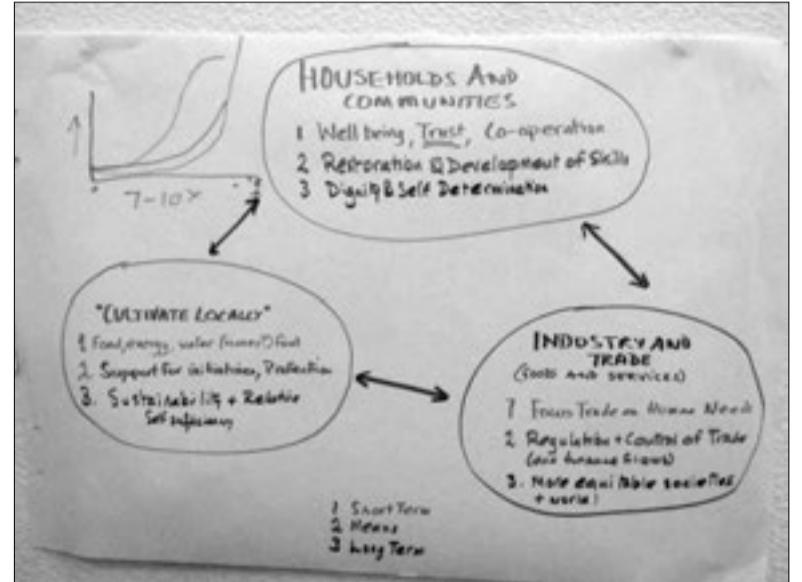 HOUSEHOLDS AND
COMMUNITIES
1 Well being, Trust, Co-operation
2 Restoration & Development of Skills
3 Dignity & Self Determination
7-10x
"CULTIVATE LOCALLY"
1 Food, energy, water
2 Support for initiatives, Protection
3. Sustainability + Relative
Self sufficiency
INDUSTRY AND
TRADE
(GOODS AND SERVICES)
1 Focus Trade on Human Needs
2 Regulation + Control of Trade
(and finance flows)
3. More equitable societies
+ world!
1 Short Term
2 Means
3 Long Term